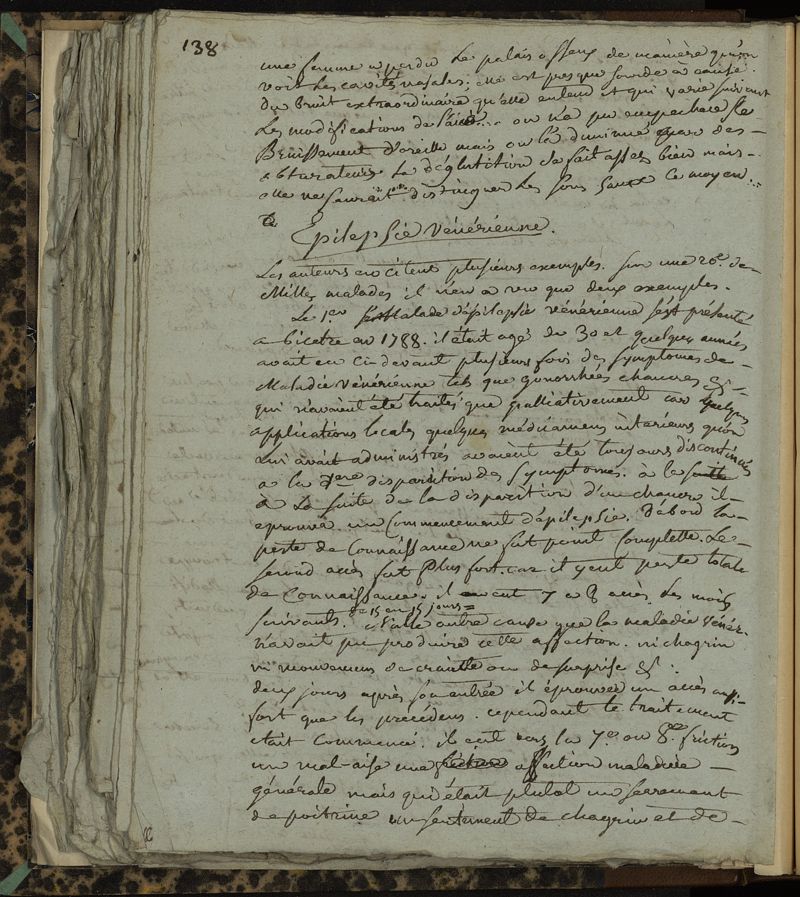 138
une femme a perdu le palais osseux de manière qu'on
voit les cavités nasales; elle est presque sourde à cause
du Bruit extraordinaire qu'elle entend et qui varie suivant
les modifications de l'air... on n'a pu empecher le
Bruissement d'oreille mais on l'a diminué par des
obturateurs la déglutition se fait assez bien mais
elle ne sauroit distinguer les sons sans ce moyen...
Epilepsie vénérienne.
Les auteurs en citent plusieurs exemples. sur une 20e. de
Milles malades il n'en a vu que deux exemples.
Le 1er Malade d'épilepsie vénérienne s'est présenté
a bicetre en 1788. il était agé de 30 et quelques années
avait eu ci-devant plusieurs fois des symptomes de
Maladie vénérienne tels que gonorrhées chancres &
qui n'avaient été traités que palliativement car quelques
applications locales quelques médicamens intérieurs qu'on
lui avait administrés avaient été toujours discontinués
a la 1ere disparition des symptomes. à la suite
a la suite de la disparition d'un chancre il
eprouva un commencement d'épilepsie. D'abord la
perte de connaissance ne fut point complette. Le
second accès fut plus fort. car il y eut perte totale
de connaissance. il eut 7 a 8 accès les mois
suivants. de 15 en 15 jours =
Nulle autre cause que la maladie vénér.
n'avait pu produire cette affection. ni chagrin
ni mouvemens de crainte ou de surprise &.
deux jours après son entrée il éprouva un accès aussi
fort que les précédens. cependant le traitement
etait commencé. il eut vers la 7e. ou 8e. friction
un mal-aise une affection maladive
générale mais qui était plutot un serrement
de poitrine un sentiment de chagrin et de